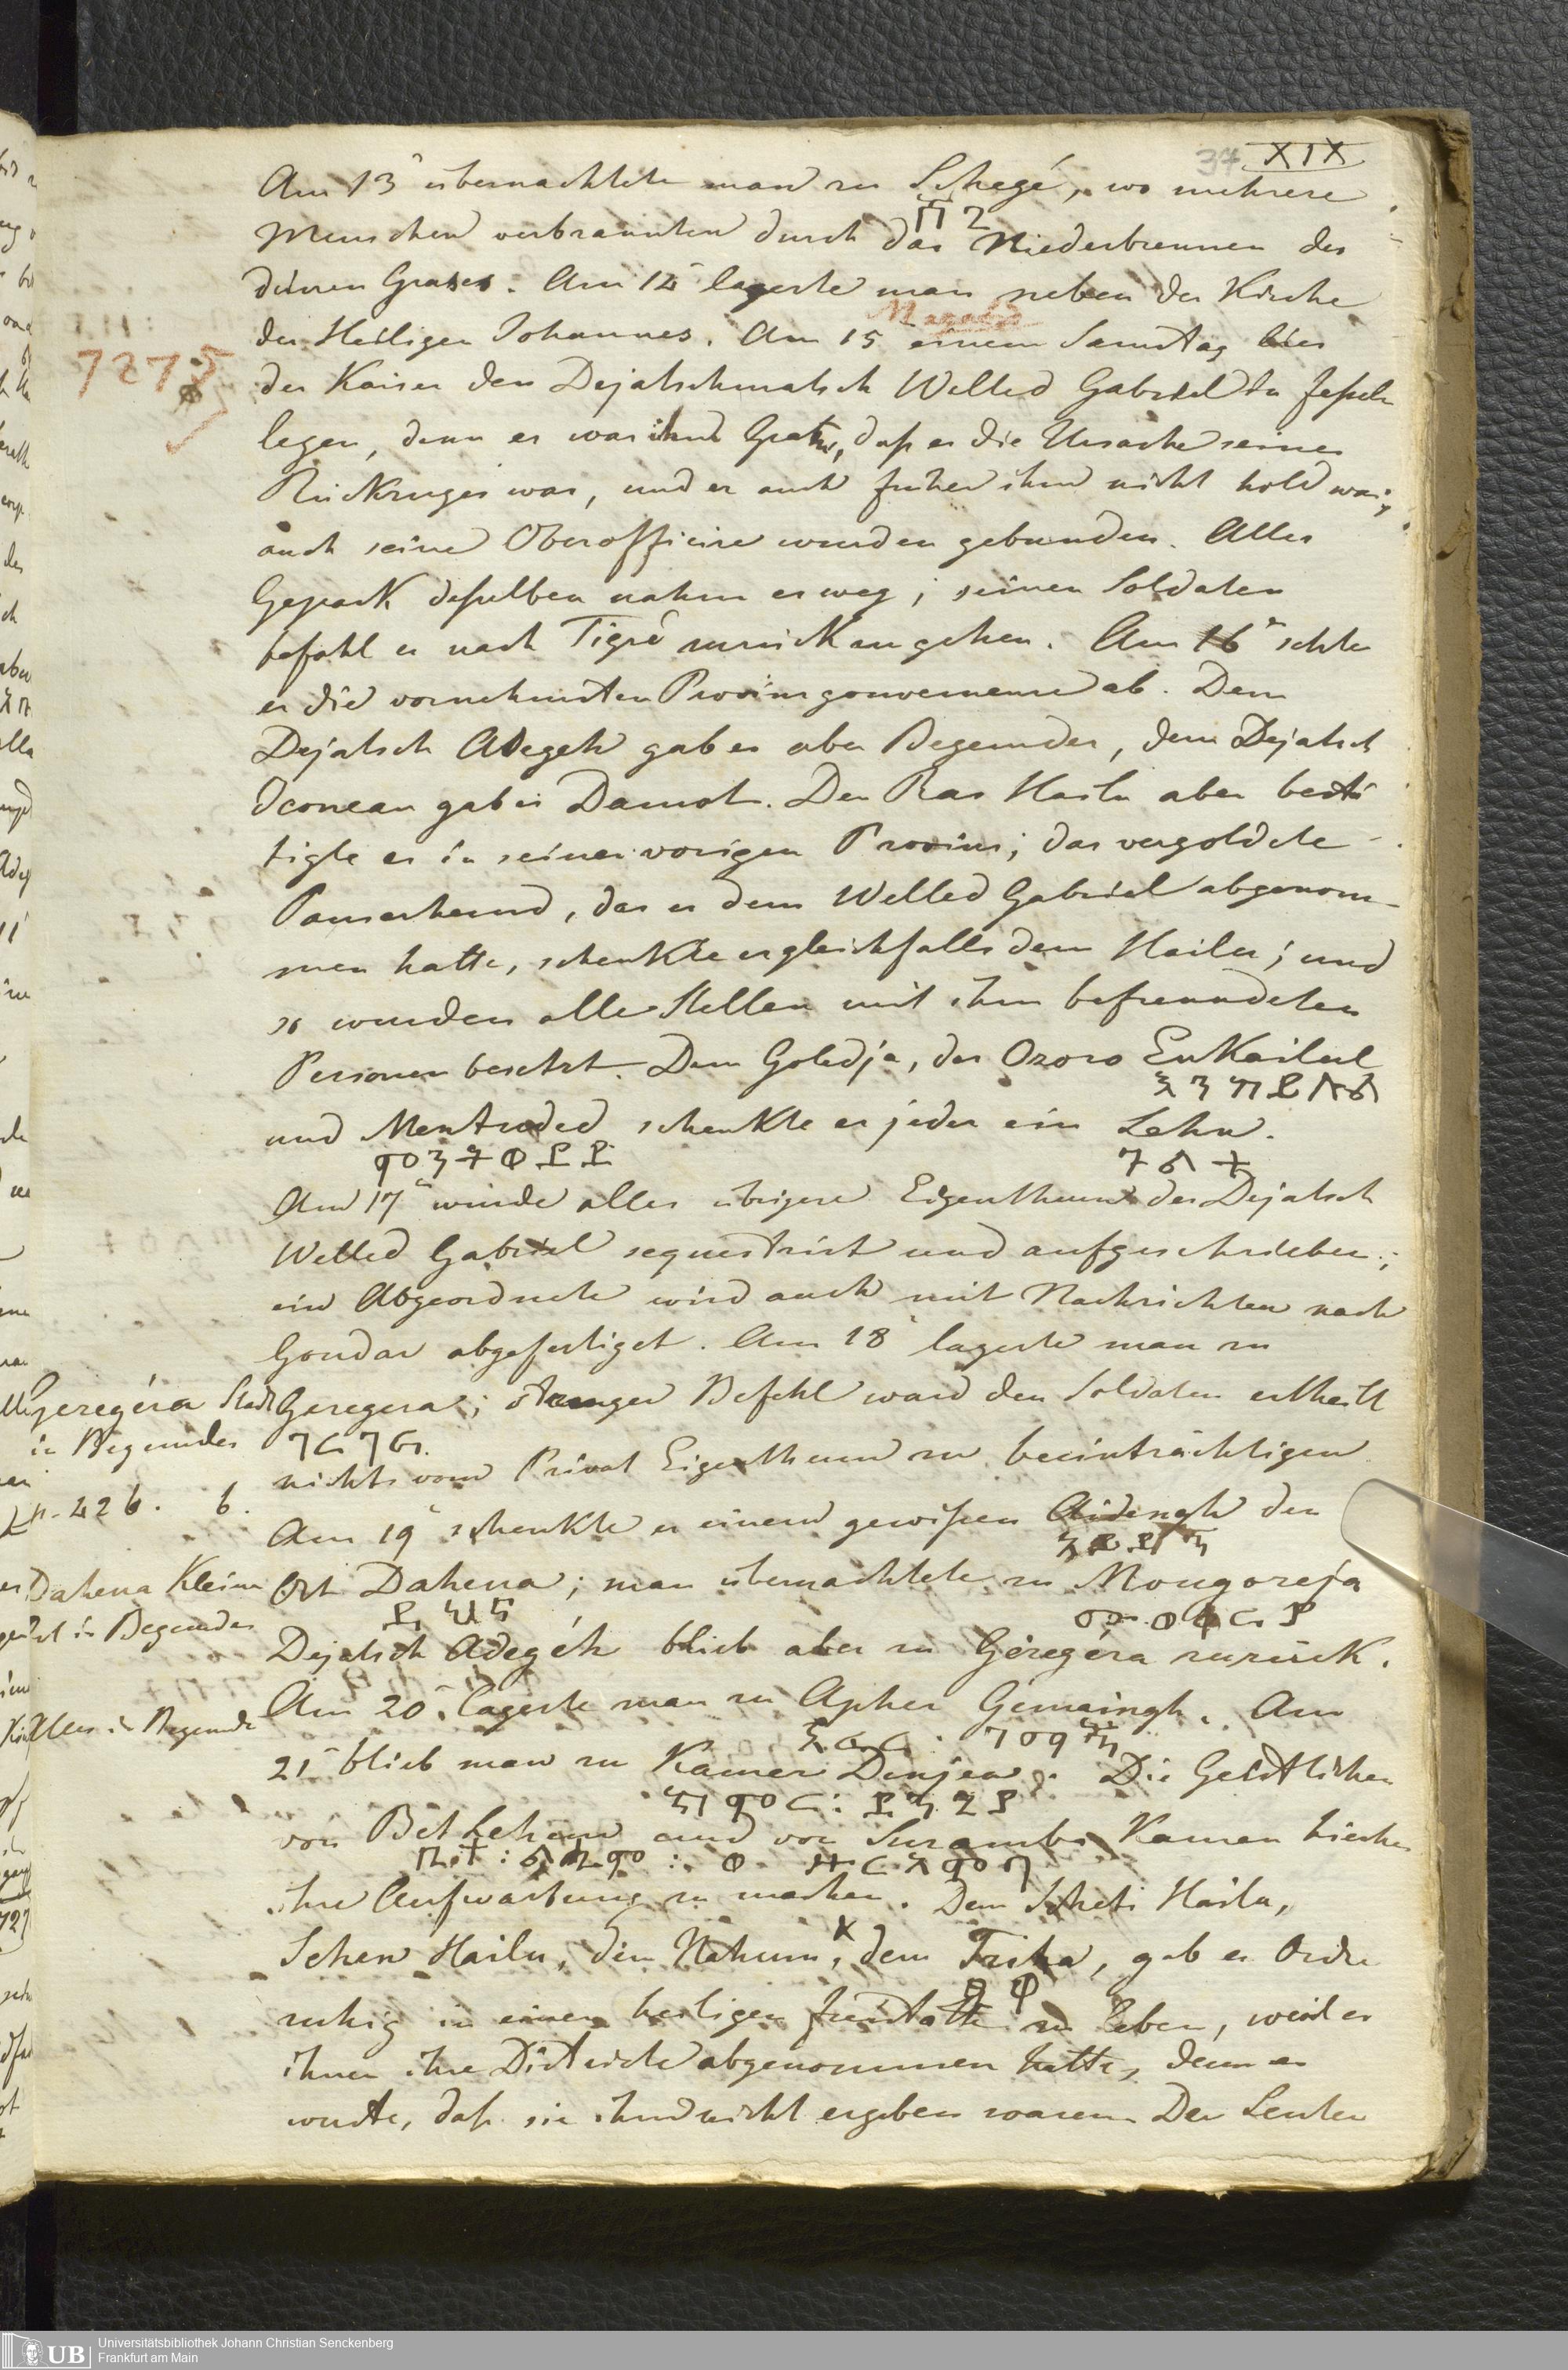 37 XIX
Am 13ⁿ übernachtete man zu Schegé, wo mehrere
ሸጊ
Menschen verbrannten durch das Niederbrennen des
dürren Grases. Am 14ⁿ lagerte man neben der Kirche
Magabit
des Heiligen Johannes. Am 15 einem Samstag lies
7275
der Kaiser den Dejatschmatsch Welled Gabriel in Feßeln
legen, denn es war ihm, daß er die Ursache seines
war, und er auch früher ihm nicht hold war;
auch seine Oberofficire wurden gebunden. Alles
Gepäck deßelben nahm er weg; seinen Soldaten
befahl er nach Tigré zurückzugehen. Am 16ⁿ setzte
er die vornehmsten Provinzgouverneure ab. Dem
Dejatsch Adegeh gab er aber Begemder, dem Dejatsch
gab er Damot. Den Ras Hailu aber bestä
tigte er in seiner vorigen Provinz; das vergoldete
Panzerhemd, das er dem Welled Gabriel abgenom-
men hatte, schenkte er gleichfalls dem Hailu; und
so wurden alle Stellen mit ihm befreundeten
Personen besetzt. Dem Goledja, der Ozoro Enkoilul
እንኮይሉል
und Mentuded schenkte er jeder ein Lehn.
ጉልት
Am 17ⁿ wurde alles übrige Eigenthum des Dejatsch
Welled Gabriel sequestrirt und aufgeschrieben;
ein Abgeordnete wird auch mit Nachrichten nach
Gondar abgefertiget. Am 18ⁿ lagerte man zu
Geregéra Stadt
in Begemder
p. 226. b.
Geregera; strenger Befehl ward den Soldaten ertheilt
ገረገራ
nichts vom Privat Eigenthum zu beeinträchtigen
Am 19ⁿ schenkte er einem gewißen den
Dahena Klein
Ort in Begemder
Ort Dahena; man übernachtete zu Mougoreja
ደሃና
Dejatsch Adegéh blieb aber zu Géregéra zurück.
Alles in Begemder
Am 20ⁿ lagerte man zu Apher Gemaingh. Am
21ⁿ blieb man zu Kamer Denjea. Die Geistlichen
ከምር: ድንጊያ
von Bethlehem und von Suramba Kamen hierher
ቤተ:ልሔም:
ihre Aufwartung zu machen. Dem Scheti Hailu,
Schen Hailu, dem Nahum, dem Tseka, gab er Ordre
ruhig in einer heiligen Freistätte zu leben, weil er
ihnen ihre Districte abgenommen hatte, denn er
wuste, daß sie ihm nicht ergeben waren. Den Leuten
Universitätsbibliothek Johann Christian Senckenberg
Frankfurt am Main
UB